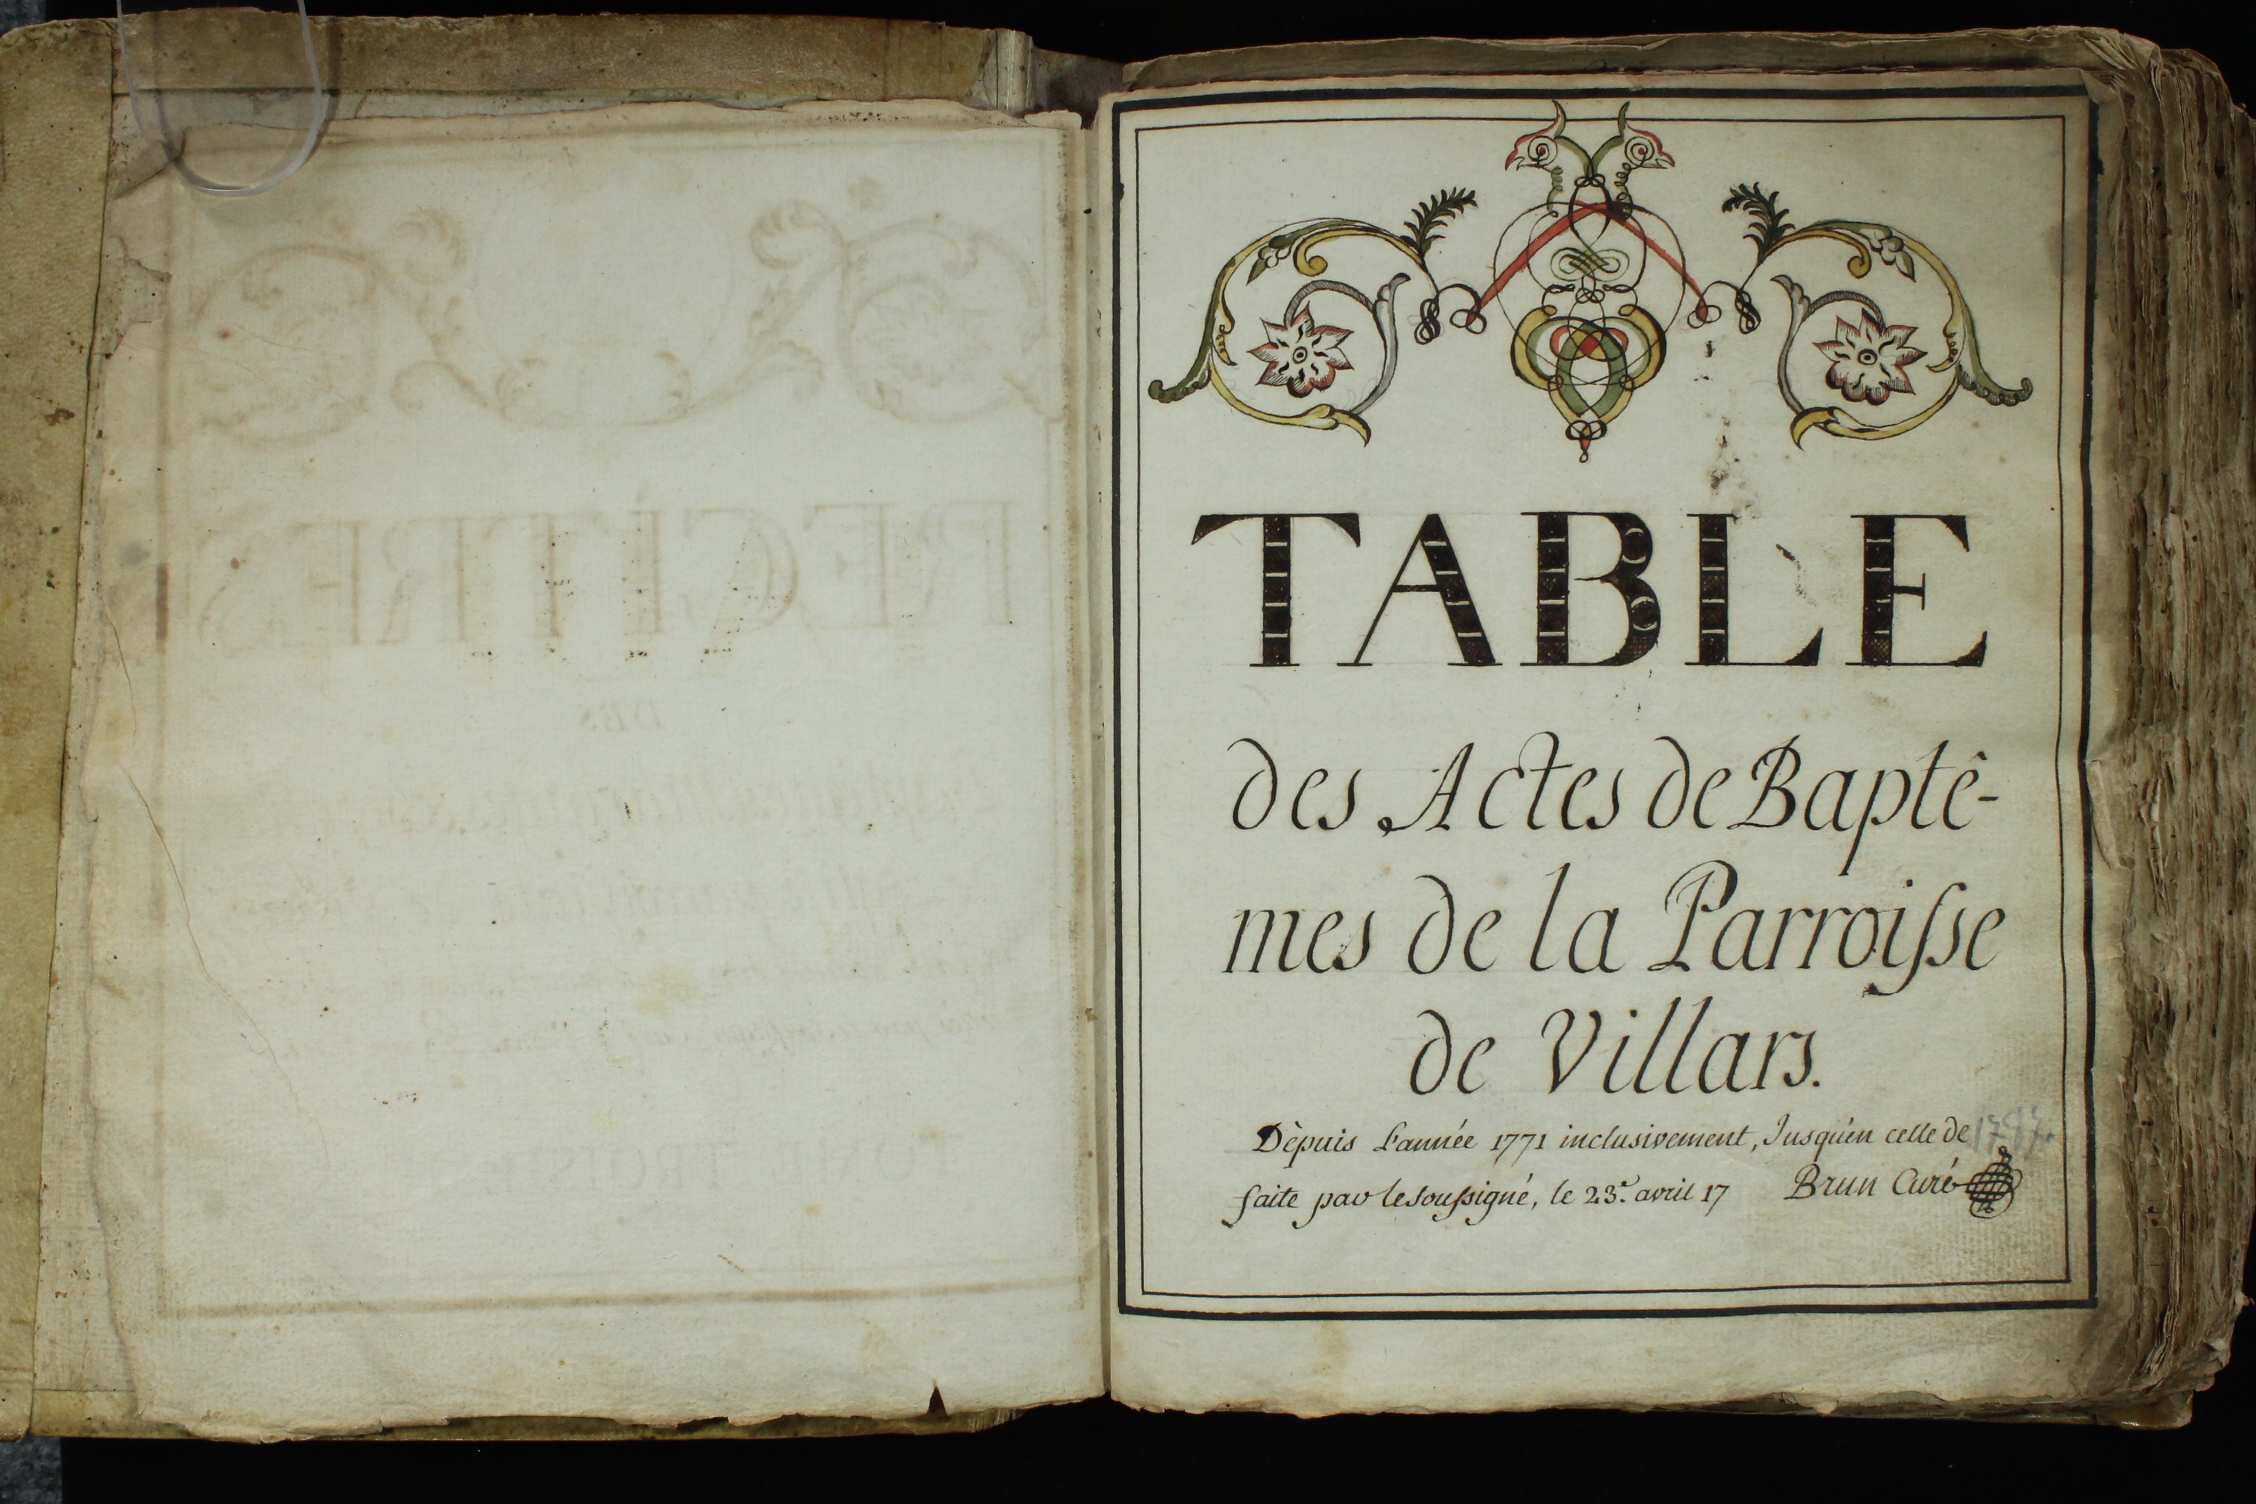 TABLE
des Actes de Baptê-
mes de la Parroiſse
de Villars.
Dèpuis L'année 1771 inclusivement, Jusqu'en celle de 1797.
faite par le souſsigné, le 23.e avril 17 Brun Curé
REGITRES
DES
TOME TROISIE